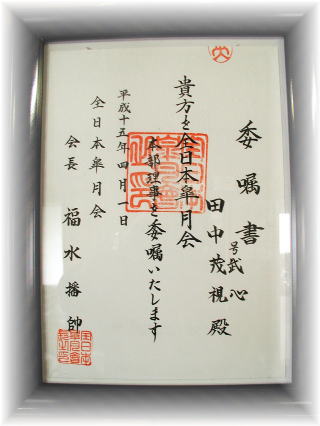 委嘱書
号武心
田中茂視殿
貴方を全日本皐月会
本部理事を委嘱いたします
平成十五年四月一日
全日本皐月会
会長 福水播帥